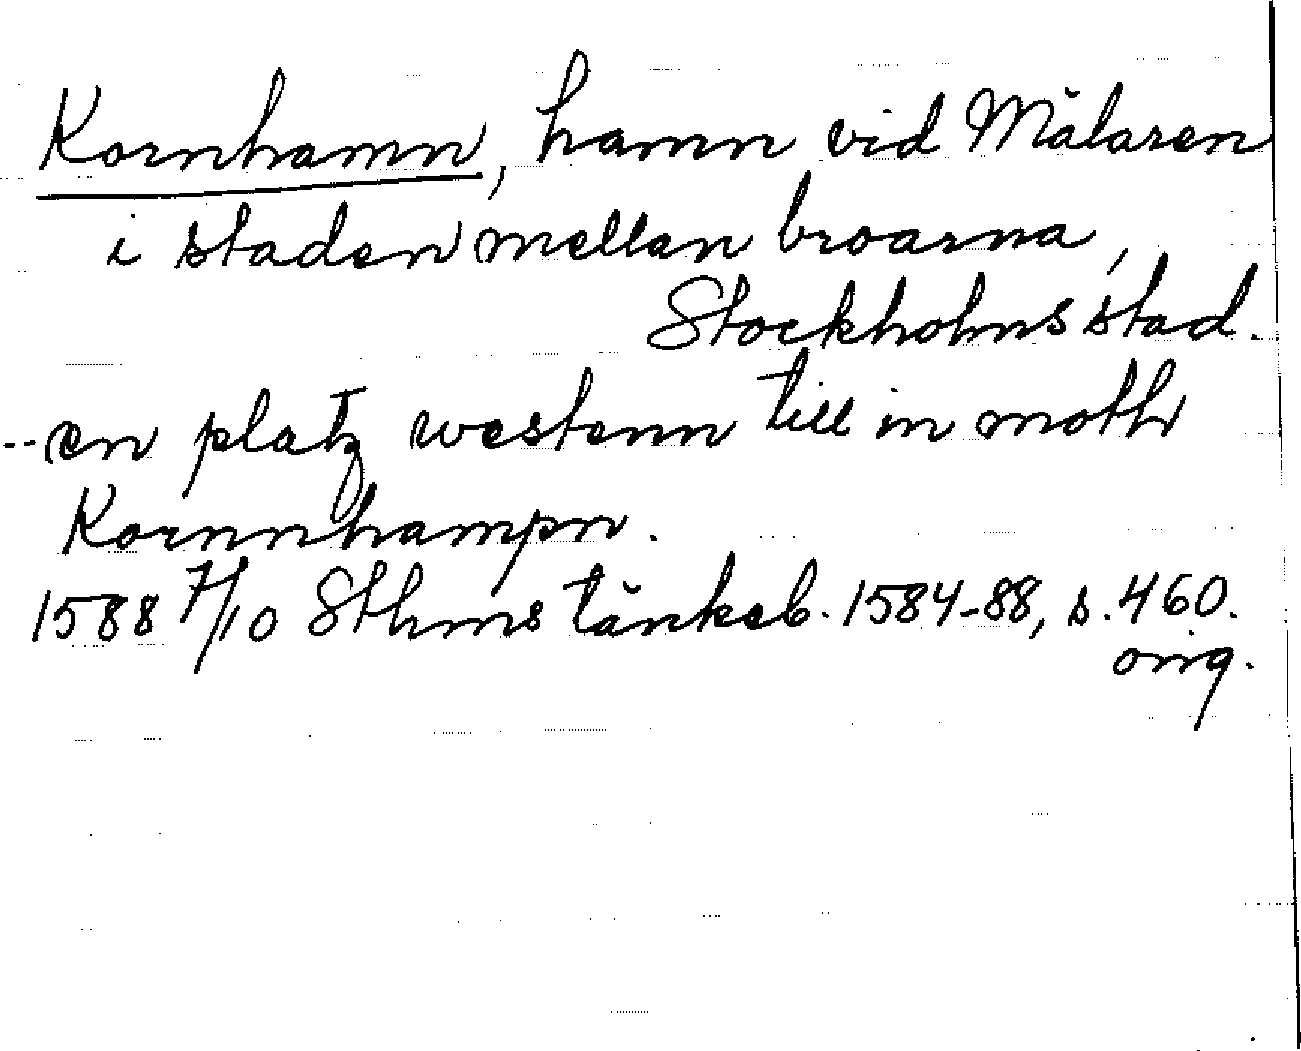 Kornhamn, hamn vid Mälaren
i staden mellan broarna,
Stockholms stad.
--en platz westenn till in moth
Kornnhampn.
1588 7/10 Sthms tänkeb. 1584-88, s. 460.
orig.